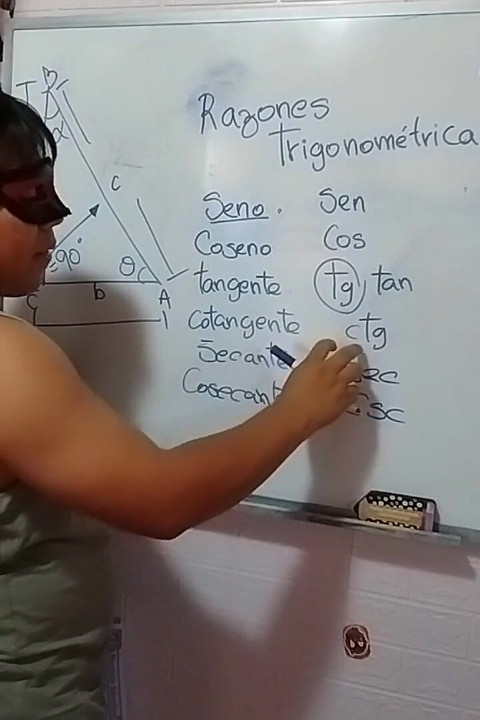 B
α
c
90°
θ
C
b
A
Razones
Trigonométrica
Seno. Sen
Coseno Cos
tangente tg, tan
cotangente ctg
Secante
Csc